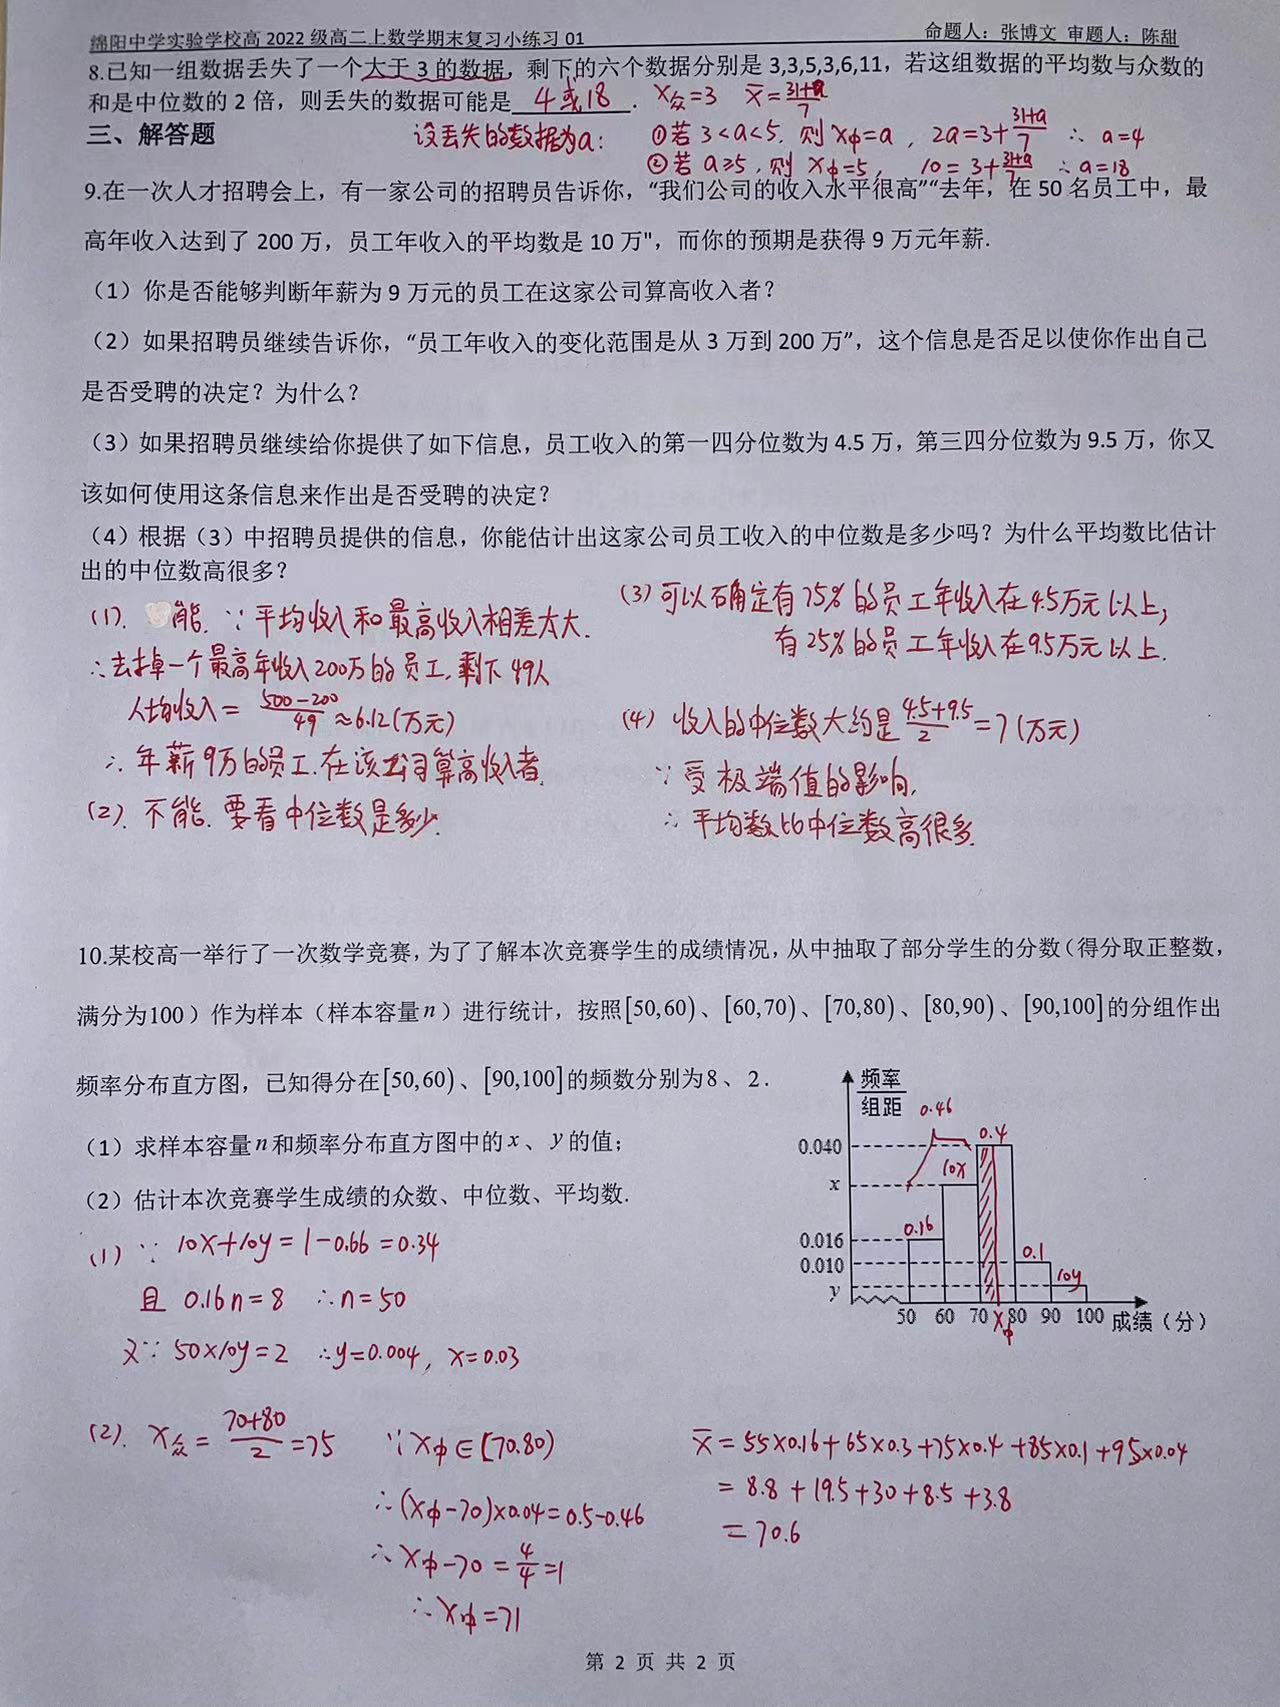 绵阳中学实验学校高 2022 级高二上数学期末复习小练习 01 命题人：张博文 审题人：陈甜
8.已知一组数据丢失了一个大于 3 的数据，剩下的六个数据分别是 3,3,5,3,6,11，若这组数据的平均数与众数的
和是中位数的 2 倍，则丢失的数据可能是 4或18 . x众=3 x̄=(31+a)/7
三、解答题
设丢失的数据为a: ①若 3<a<5, 则 x中=a , 2a=3+(31+a)/7 ∴ a=4
②若 a≥5, 则 x中=5, 10=3+(31+a)/7 ∴a=18
9.在一次人才招聘会上，有一家公司的招聘员告诉你，“我们公司的收入水平很高”“去年，在 50 名员工中，最
高年收入达到了 200 万，员工年收入的平均数是 10 万"，而你的预期是获得 9 万元年薪.
（1）你是否能够判断年薪为 9 万元的员工在这家公司算高收入者？
（2）如果招聘员继续告诉你，“员工年收入的变化范围是从 3 万到 200 万”，这个信息是否足以使你作出自己
是否受聘的决定？为什么？
（3）如果招聘员继续给你提供了如下信息，员工收入的第一四分位数为 4.5 万，第三四分位数为 9.5 万，你又
该如何使用这条信息来作出是否受聘的决定？
（4）根据（3）中招聘员提供的信息，你能估计出这家公司员工收入的中位数是多少吗？为什么平均数比估计
出的中位数高很多？
(1). 能. ∵ 平均收入和最高收入相差太大.
∴去掉一个最高年收入200万的员工, 剩下 49人
人均收入= (500-200)/49 ≈6.12(万元)
∴ 年薪9万的员工.在该公司算高收入者.
(2). 不能. 要看中位数是多少.
(3) 可以确定有75%的员工年收入在4.5万元以上,
有25%的员工年收入在9.5万元以上.
(4) 收入的中位数大约是(4.5+9.5)/2=7(万元)
∵ 受极端值的影响,
∴ 平均数比中位数高很多.
10.某校高一举行了一次数学竞赛，为了了解本次竞赛学生的成绩情况，从中抽取了部分学生的分数（得分取正整数，
满分为100）作为样本（样本容量 n ）进行统计，按照[50,60)、[60,70)、[70,80)、[80,90)、[90,100]的分组作出
频率分布直方图，已知得分在[50,60)、[90,100]的频数分别为8、2 .
（1）求样本容量 n 和频率分布直方图中的 x 、 y 的值；
（2）估计本次竞赛学生成绩的众数、中位数、平均数.
频率
组距
0.46
0.040 0.4
x 10x
0.016 0.16
0.010 0.1
y 10y
50 60 70 x中 80 90 100 成绩（分）
(1) ∵ 10x+10y=1-0.66=0.34
且 0.16n=8 ∴n=50
又∵ 50×10y=2 ∴y=0.004, x=0.03
(2). x众=(70+80)/2=75
∵x中∈[70.80)
∴(x中-70)×0.04=0.5-0.46
∴x中-70=4/4=1
∴x中=71
x̄=55×0.16+65×0.3+75×0.4+85×0.1+95×0.04
=8.8+19.5+30+8.5+3.8
=70.6
第 2 页 共 2 页